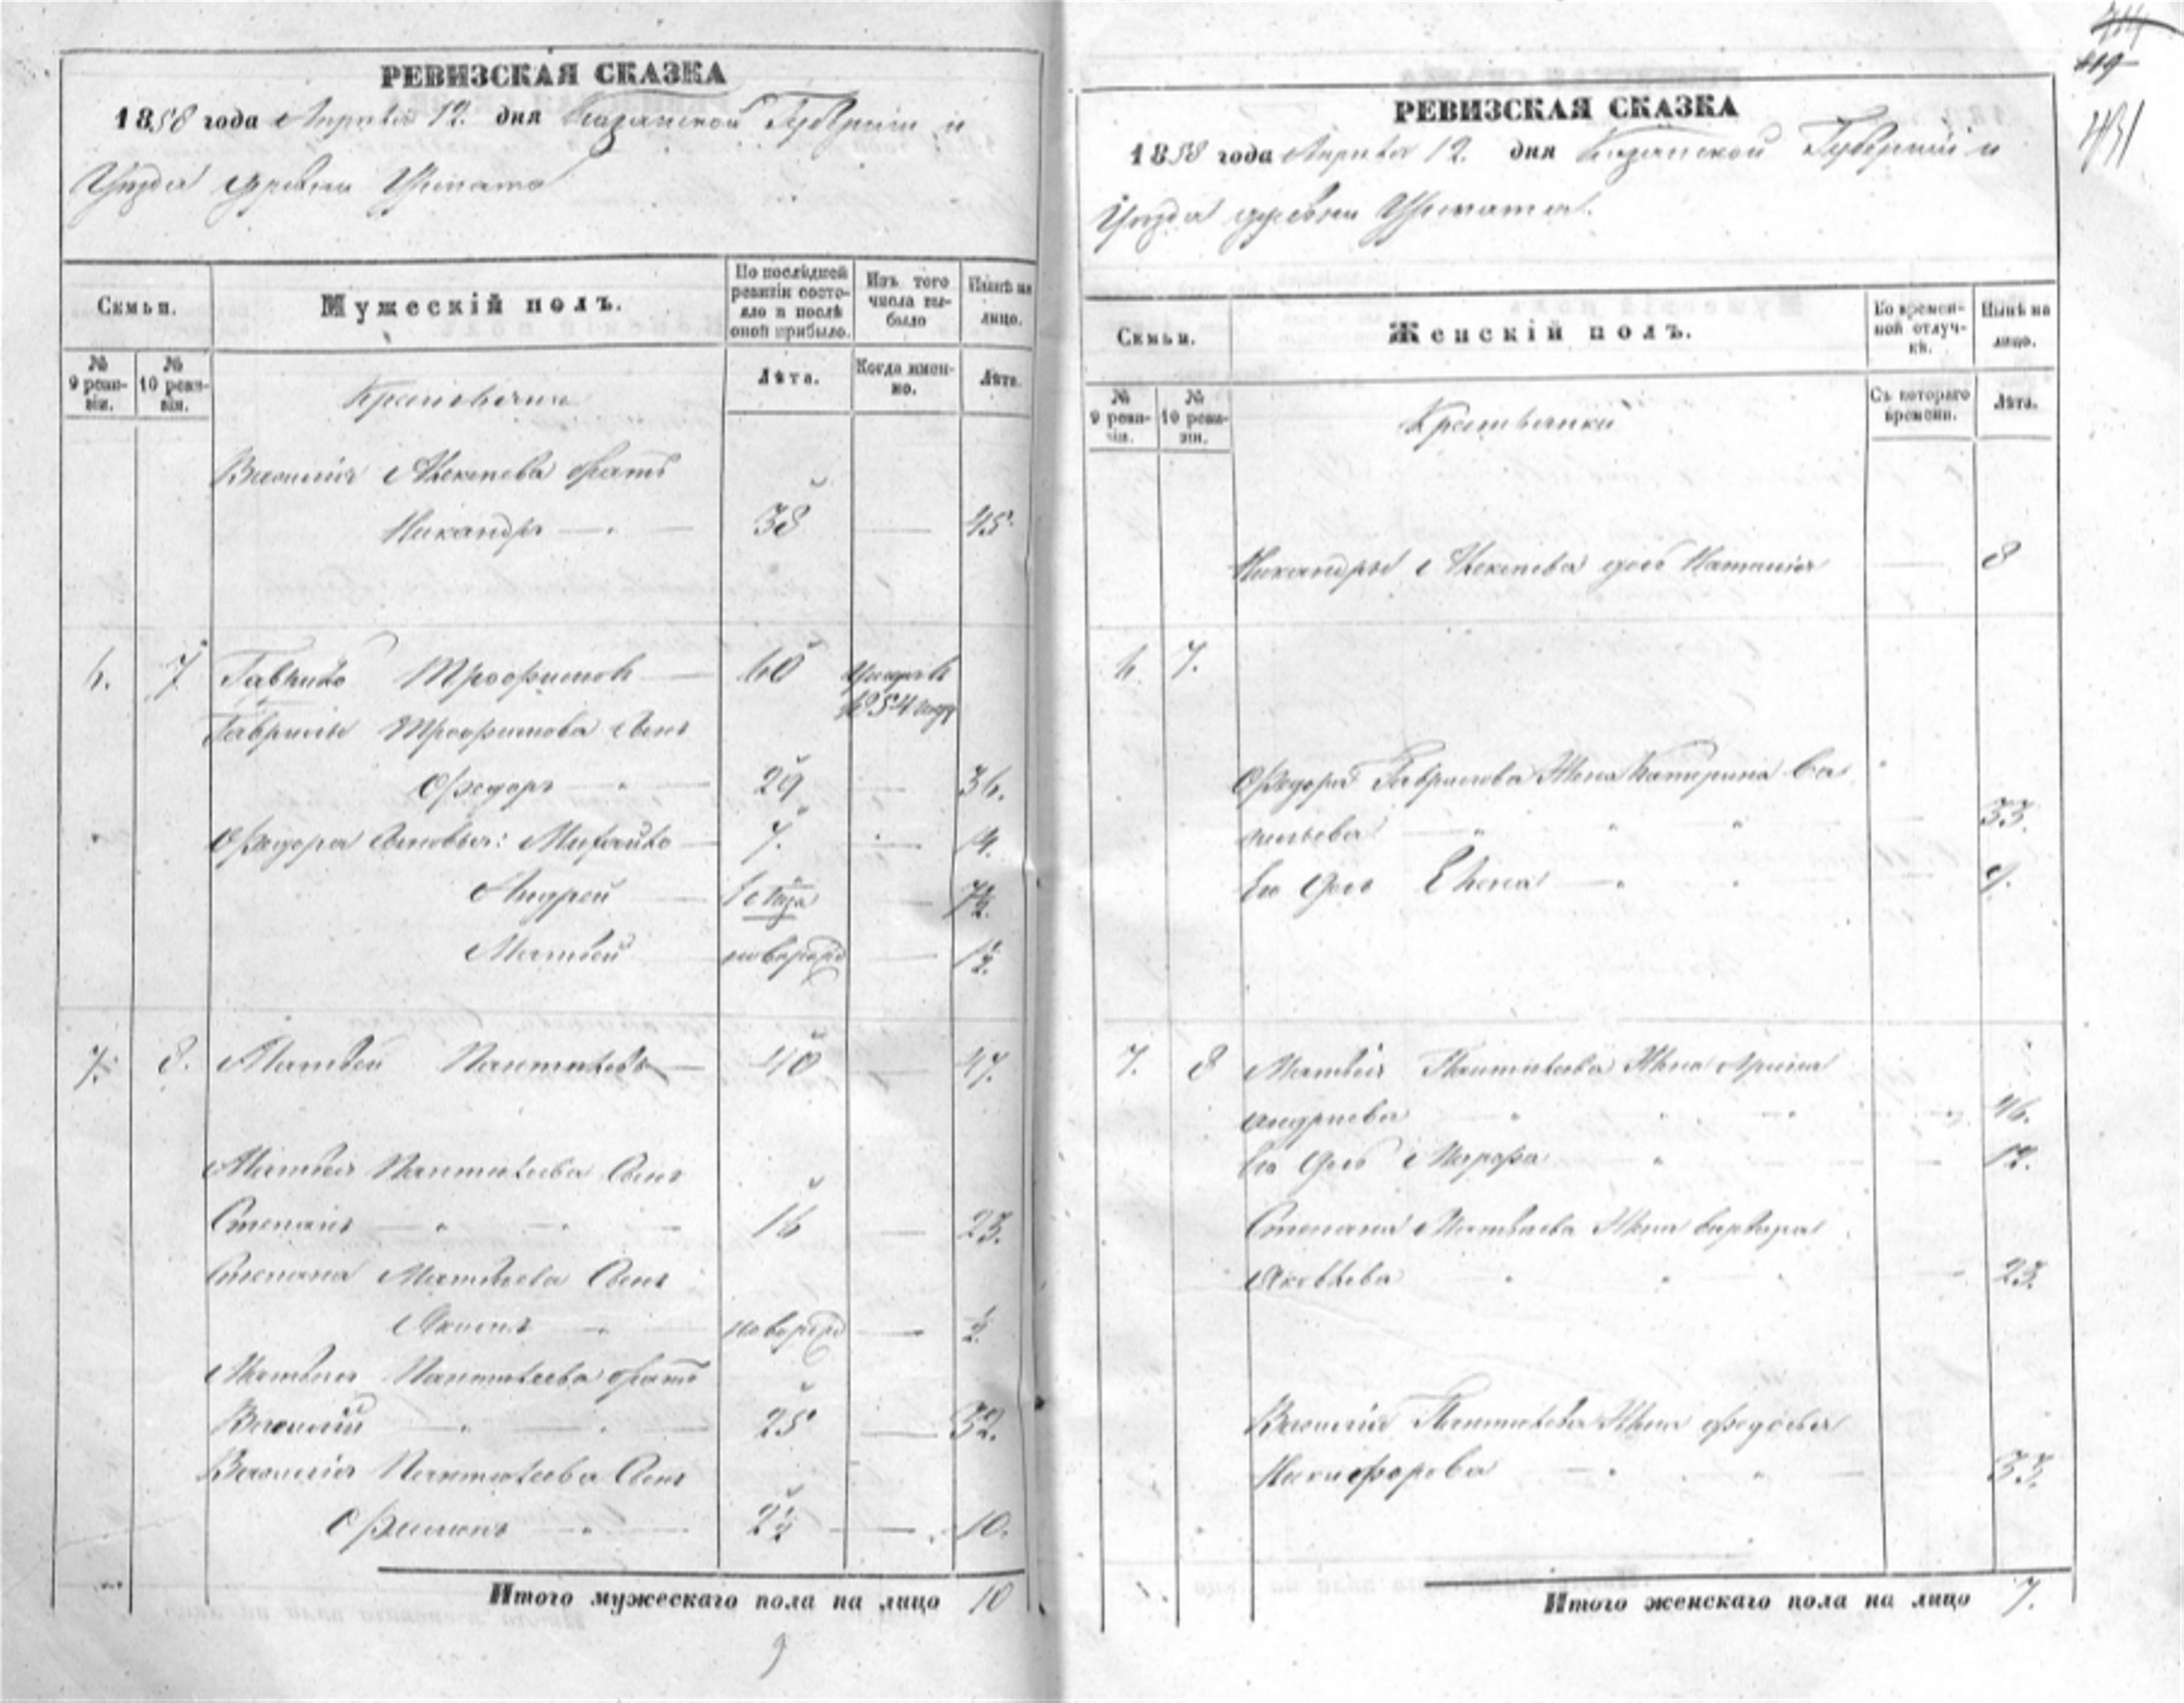 РЕВИЗСКАЯ СКАЗКА
1858 года Апреля 12. дня Казанской Губернии и
Уезда деревни
Семьи.
Мужескій полъ.
По послѣдней ревизіи состояло и послѣ оной прибыло.
Изъ того числа выбыло
Нынѣ на лицо.
№ 9 ревизіи.
№ 10 ревизіи.
Крестьяне
Лѣта.
Когда именно.
Лѣта.
Василія Алексеева братъ
Никандръ 38 45
6. 7 Гаврило Трофимовъ 60 умре въ 1854 году
Гаврилы Трофимова Сынъ
Федоръ 29 36.
Федора Сыновья: Михайло 7. 14.
Андрей 1/2 года 7 1/2.
Матвей новорожд 1/2.
7. 8. Матвей Пантилеевъ 40 47.
Матвея Пантилеева Сынъ
Степанъ 16 23.
Степана Матвеева Сынъ
Якимъ новорожд 1/2.
Матвея Пантилеева братъ
Василій 25 32.
Василія Пантилеева Сынъ
Филипъ 2 1/2 10.
Итого мужескаго пола на лицо 10
9
419
431
РЕВИЗСКАЯ СКАЗКА
1858 года Апреля 12. дня Казанской Губерніи и
Уезда деревни
Семьи.
Женскій полъ.
Во временной отлучкѣ.
Нынѣ на лицо.
№ 9 ревизіи.
№ 10 ревизіи.
Крестьянки
Съ котораго времени.
Лѣта.
Никандры Алексеева дочь Наталия 8
6. 7.
Федора Гаврилова Жена Катерина Ва
сильева 33.
Его Дочь Елена 9.
7. 8 Матвея Пантилеева Жена Арина
Андриева 46.
Его Дочь Марфа 12.
Степана Матвеева Жена Варвара
Яковлева 23.
Василія Пантилеева Жена Федосья
Никифорова 33.
Итого женскаго пола на лицо 7.